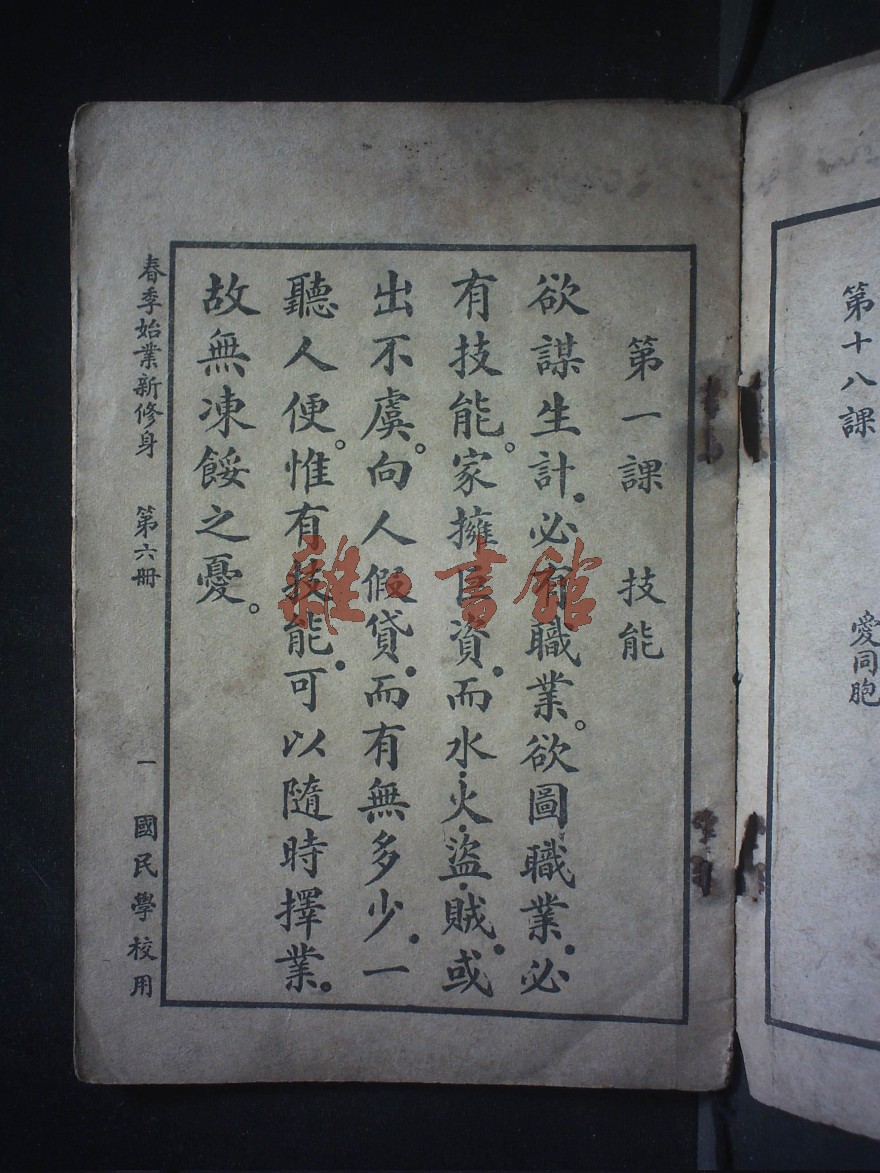 第十八課　愛同胞
第一課　技能
欲謀生計.必有職業。欲圖職業.必
有技能。家擁巨資.而水.火.盜.賊.或
出不虞。向人假貸.而有無多少.一
聽人便。惟有技能.可以隨時擇業.
故無凍餒之憂。
春季始業新修身　第六冊　一　國民學校用
雜·書館